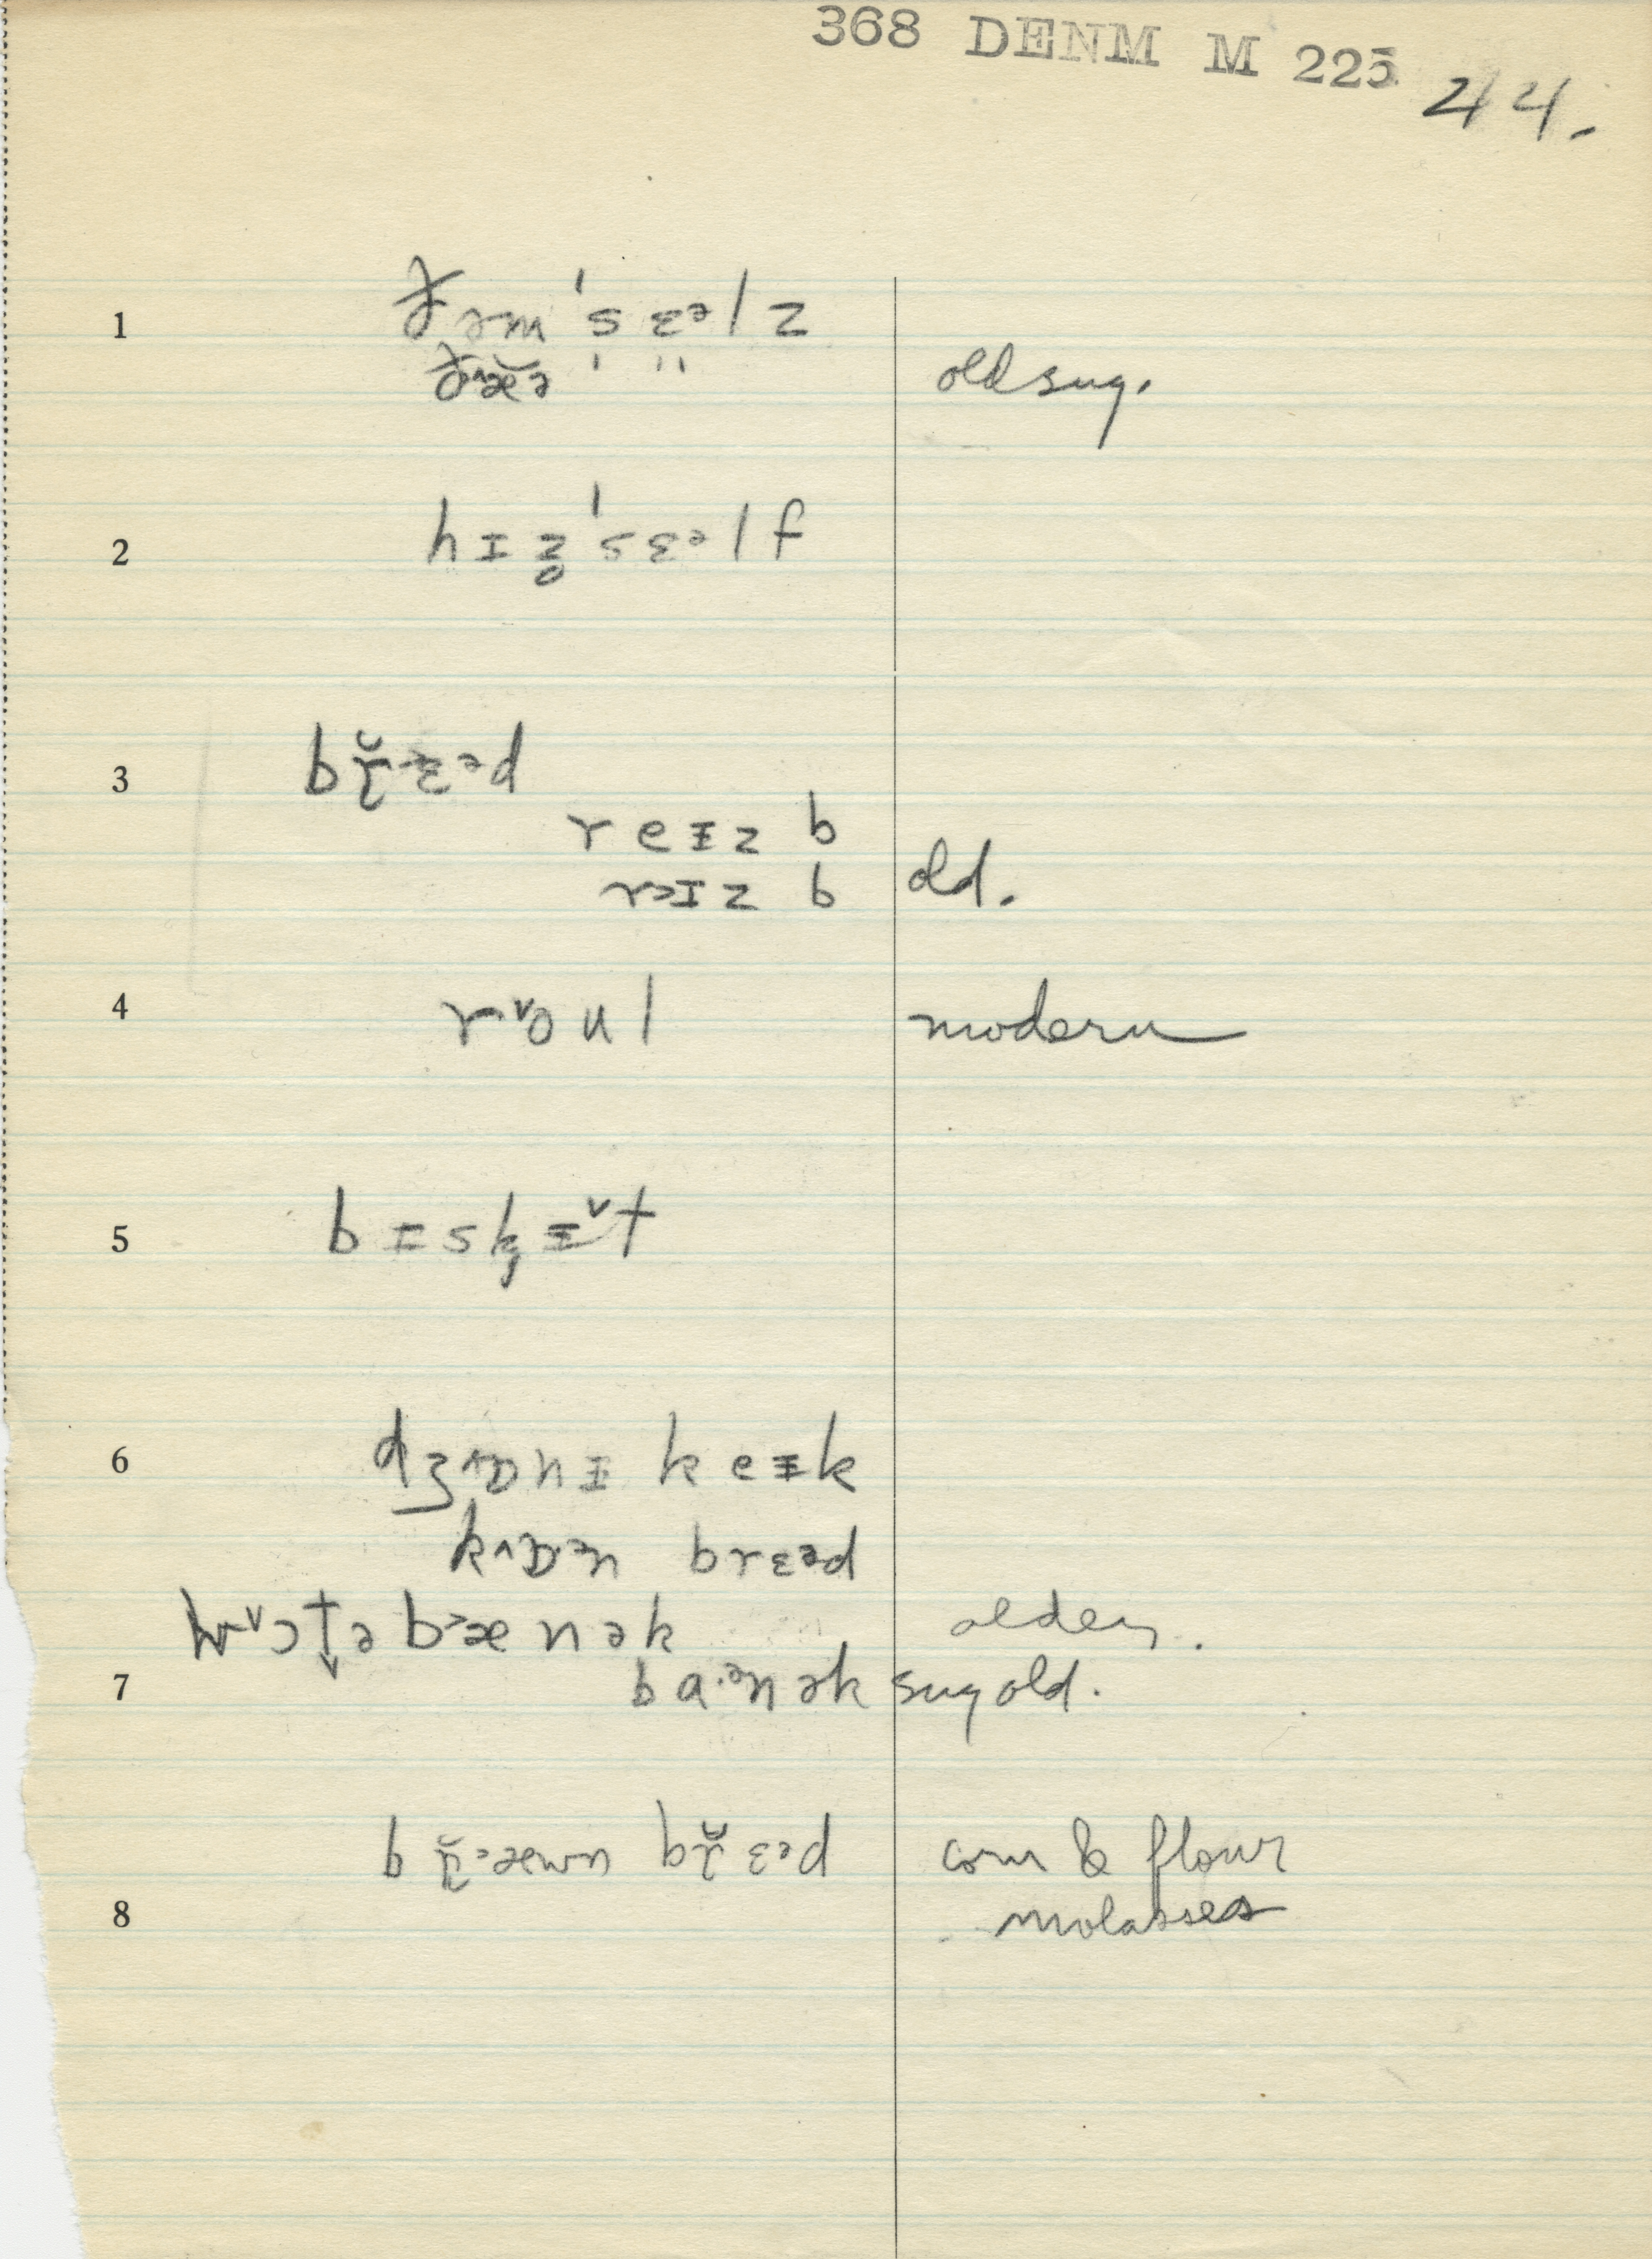 368 DENM M 225 44.
1 ðəm ˈsɛᵊlz
old sug.
2 hɪz̥ ˈsɛᵊlf
3 br̯̆ɛᵊd
reɪz b
rəɪz b old.
4 r ou l modern
5 bɪskɪt
6 dʒɒnɪ keɪk
kɒᵊn brɛᵊd
bænək older.
7 ba·ᵊnək sug old.
brᵊæwn br̯̆ɛᵊd corn & flour
8 molasses